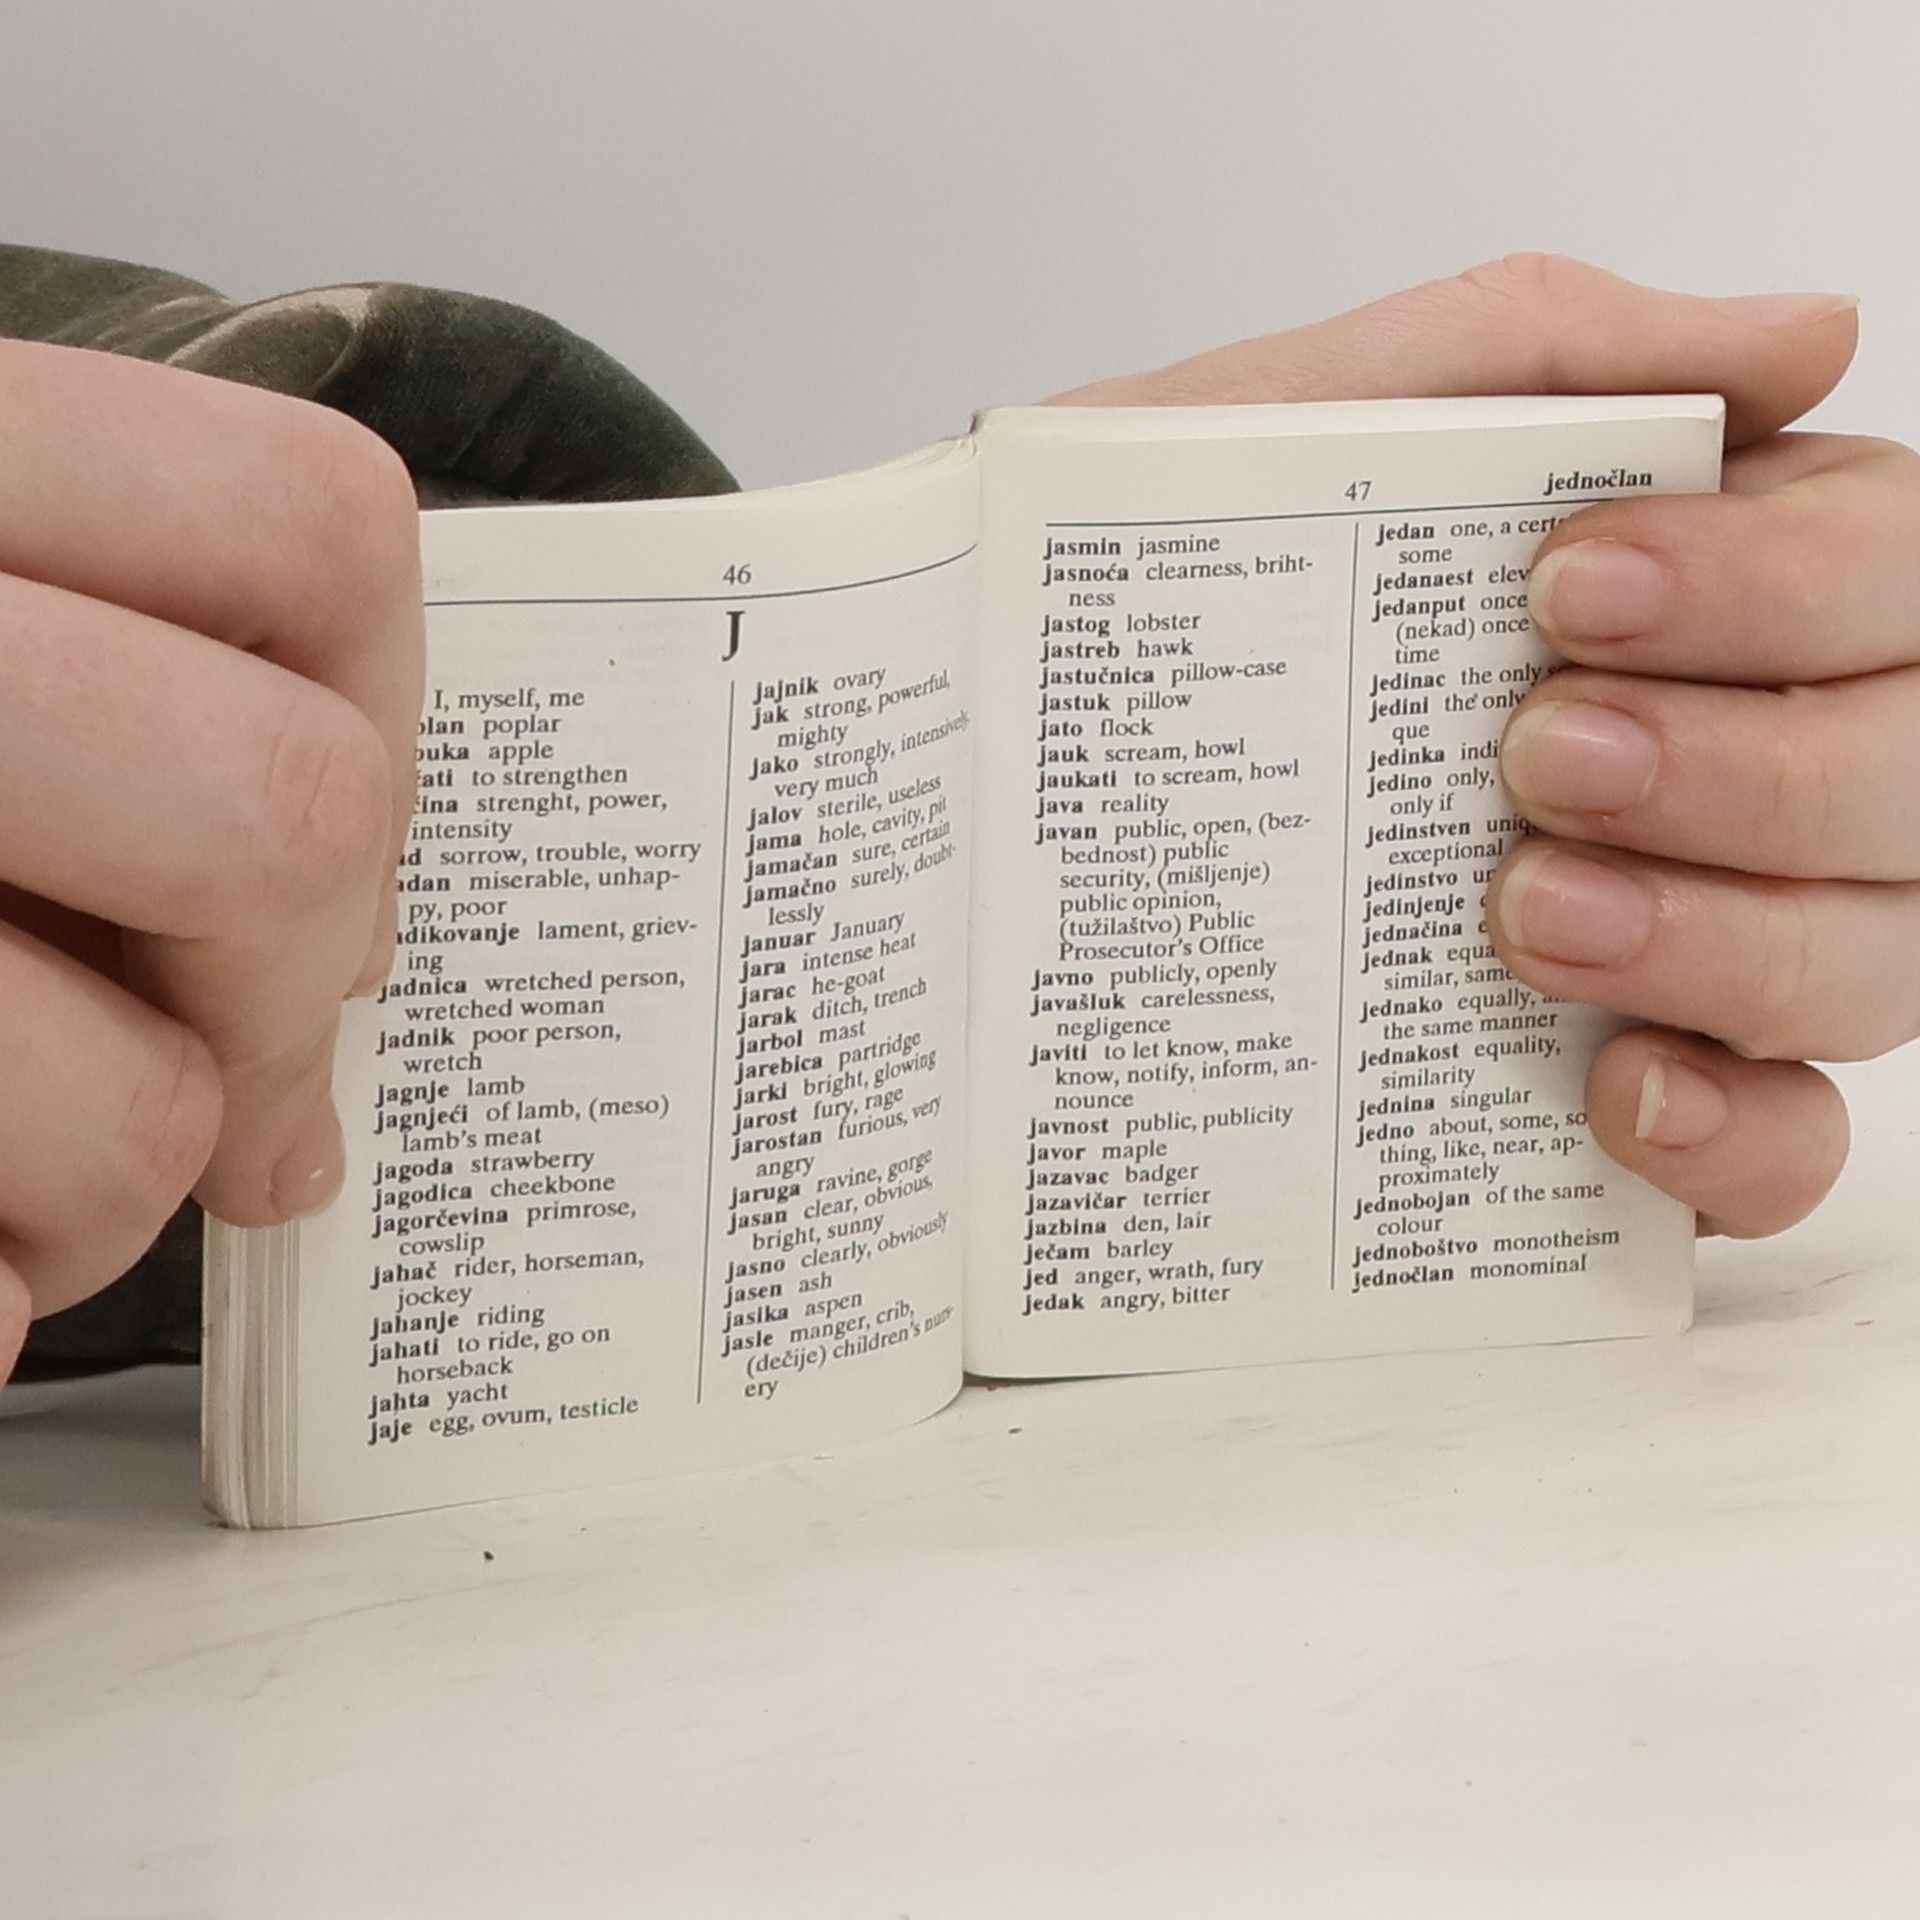 46
J
I, myself, me
poplar
apple
to strengthen
strenght, power,
intensity
sorrow, trouble, worry
miserable, unhap-
py, poor
lament, griev-
ing
jadnica wretched person,
wretched woman
jadnik poor person,
wretch
jagnje lamb
jagnjeći of lamb, (meso)
lamb's meat
jagoda strawberry
jagodica cheekbone
jagorčevina primrose,
cowslip
jahač rider, horseman,
jockey
jahanje riding
jahati to ride, go on
horseback
jahta yacht
jaje egg, ovum, testicle
jajnik ovary
jak strong, powerful,
mighty
jako strongly, intensively,
very much
jalov sterile, useless
jama hole, cavity, pit
jamačan sure, certain
jamačno surely, doubt-
lessly
januar January
jara intense heat
jarac he-goat
jarak ditch, trench
jarbol mast
jarebica partridge
jarki bright, glowing
jarost fury, rage
jarostan furious, very
angry
jaruga ravine, gorge
jasan clear, obvious,
bright, sunny
jasno clearly, obviously
jasen ash
jasika aspen
jasle manger, crib,
(dečije) children's nurs-
ery
47
jednočlan
jasmin jasmine
jasnoća clearness, briht-
ness
jastog lobster
jastreb hawk
jastučnica pillow-case
jastuk pillow
jato flock
jauk scream, howl
jaukati to scream, howl
java reality
javan public, open, (bez-
bednost) public
security, (mišljenje)
public opinion,
(tužilaštvo) Public
Prosecutor's Office
javno publicly, openly
javašluk carelessness,
negligence
javiti to let know, make
know, notify, inform, an-
nounce
javnost public, publicity
javor maple
jazavac badger
jazavičar terrier
jazbina den, lair
ječam barley
jed anger, wrath, fury
jedak angry, bitter
jedan one, a
some
jedanaest
jedanput once
(nekad) once
time
jedinac the only
jedini the only
que
jedinka
jedino only,
only if
jedinstven
exceptional
jedinstvo
jedinjenje
jednačina
jednak
similar, same,
jednako equally,
the same manner
jednakost equality,
similarity
jednina singular
jedno about, some, so
thing, like, near, ap-
proximately
jednobojan of the same
colour
jednoboštvo monotheism
jednočlan monominal